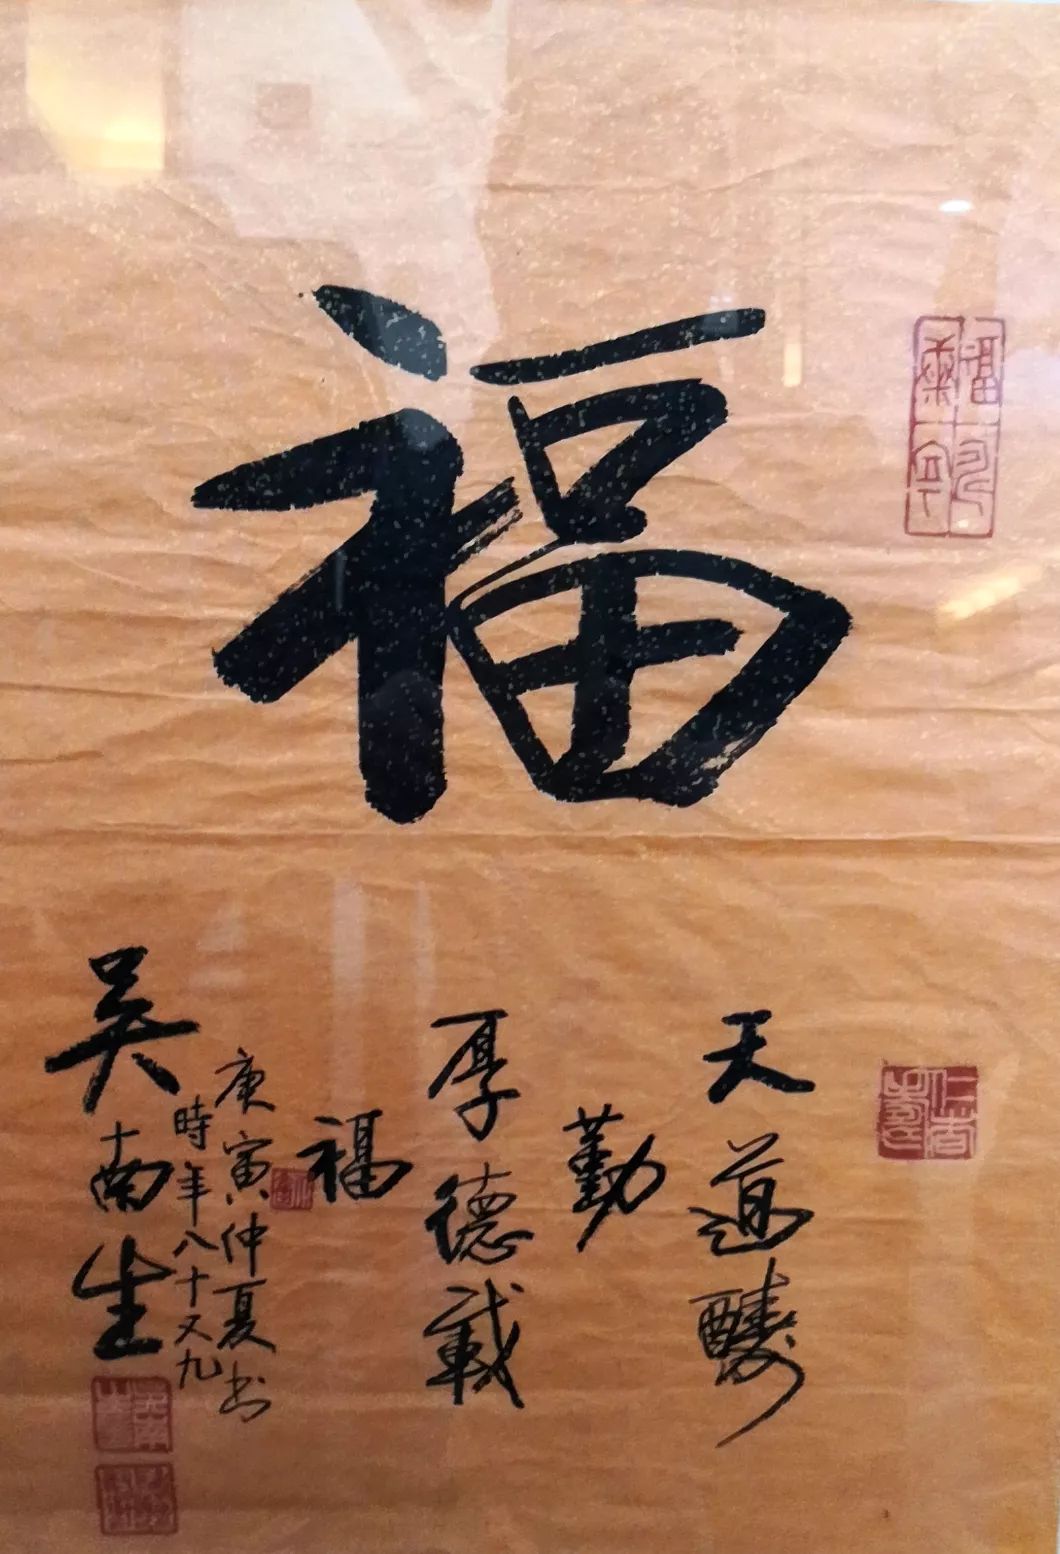 福
天道酬
勤
厚德載
福
庚寅仲夏书
時年八十又九
吴南生
仁者壽